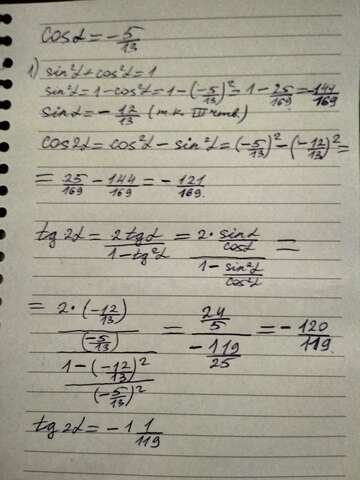 cosα = -5/13
1) sin²α + cos²α = 1
sin²α = 1 - cos²α = 1 - (-5/13)² = 1 - 25/169 = 144/169
sinα = -12/13 (т.к. III четв.)
cos2α = cos²α - sin²α = (-5/13)² - (-12/13)² =
= 25/169 - 144/169 = -121/169.
tg2α = 2tgα/(1-tg²α) = (2·sinα/cosα)/(1 - sin²α/cos²α) =
= (2·(-12/13)/(-5/13))/(1 - (-12/13)²/(-5/13)²) = (24/5)/(-119/25) = -120/119.
tg2α = -1 1/119